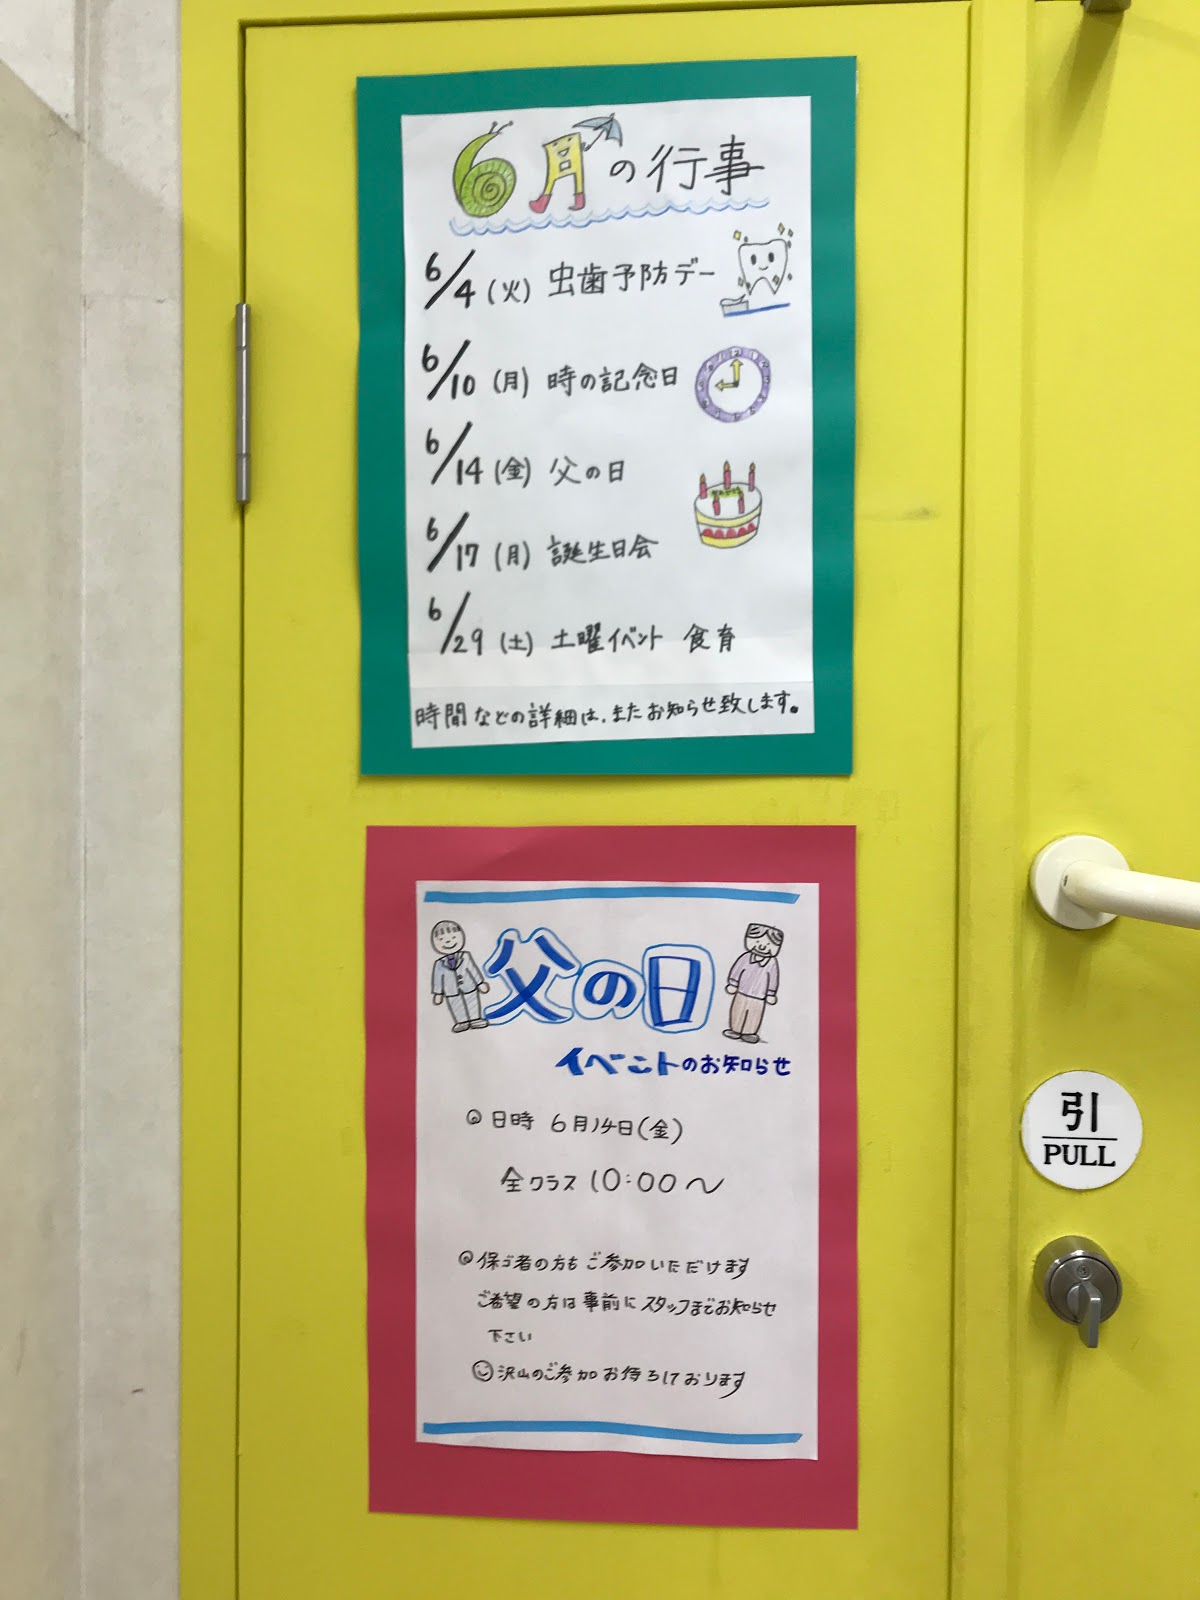 6月の行事
6/4(火) 虫歯予防デー
6/10(月) 時の記念日
6/14(金) 父の日
6/17(月) 誕生日会
6/29(土) 土曜イベント 食育
時間などの詳細は、またお知らせ致します。
父の日
イベントのお知らせ
日時 6月14日(金)
全クラス 10:00〜
保ゴ者の方もご参加いただけます
ご希望の方は事前にスタッフまでお知らせ
下さい
沢山のご参加お待ちしております
引
PULL